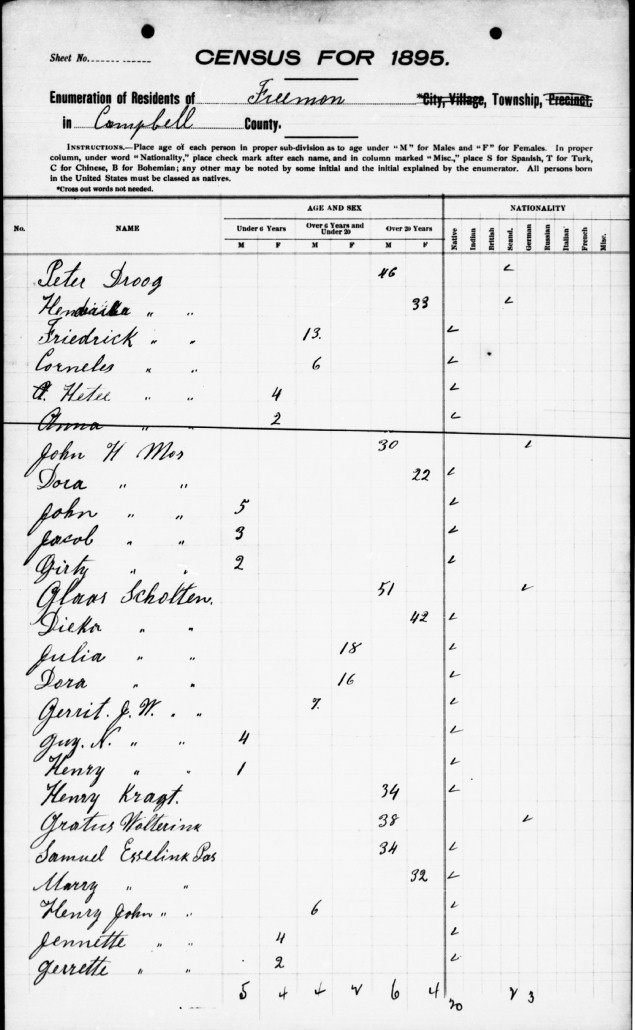 Sheet No.
CENSUS FOR 1895.
Enumeration of Residents of Freemon *City, Village, Township, Precinct,
in Campbell County.
INSTRUCTIONS.—Place age of each person in proper sub-division as to age under "M" for Males and "F" for Females. In proper
column, under word "Nationality," place check mark after each name, and in column marked "Misc.," place S for Spanish, T for Turk,
C for Chinese, B for Bohemian; any other may be noted by some initial and the initial explained by the enumerator. All persons born
in the United States must be classed as natives.
*Cross out words not needed.
AGE AND SEX NATIONALITY
No. NAME Under 6 Years Over 6 Years and Under 20 Over 20 Years Native Indian British Scand. German Russian Italian French Misc.
M F M F M F
Peter Droog 46 ✓
" " 33 ✓
Friedrick " " 13. ✓
Corneles " " 6 ✓
Hetee " " 4 ✓
Anna " " 2 ✓
John H Mos 30 ✓
Dora " " 22 ✓
John " " 5 ✓
Jacob " " 3 ✓
Girty " " 2 ✓
Glaas Scholten. 51 ✓
Dieka " " 42 ✓
Julia " " 18 ✓
Dora " " 16 ✓
Gerrit. J. W. " " 7. ✓
Guy. N. " " 4 ✓
Henry " " 1 ✓
Henry Kragt. 34 ✓
Gratus Wolterink 38 ✓
Samuel Esselink Pas 34 ✓
Marry " " 32 ✓
Henry John " " 6 ✓
Jennette " " 4 ✓
Gerrette " " 2 ✓
5 4 4 2 6 4 20 2 3